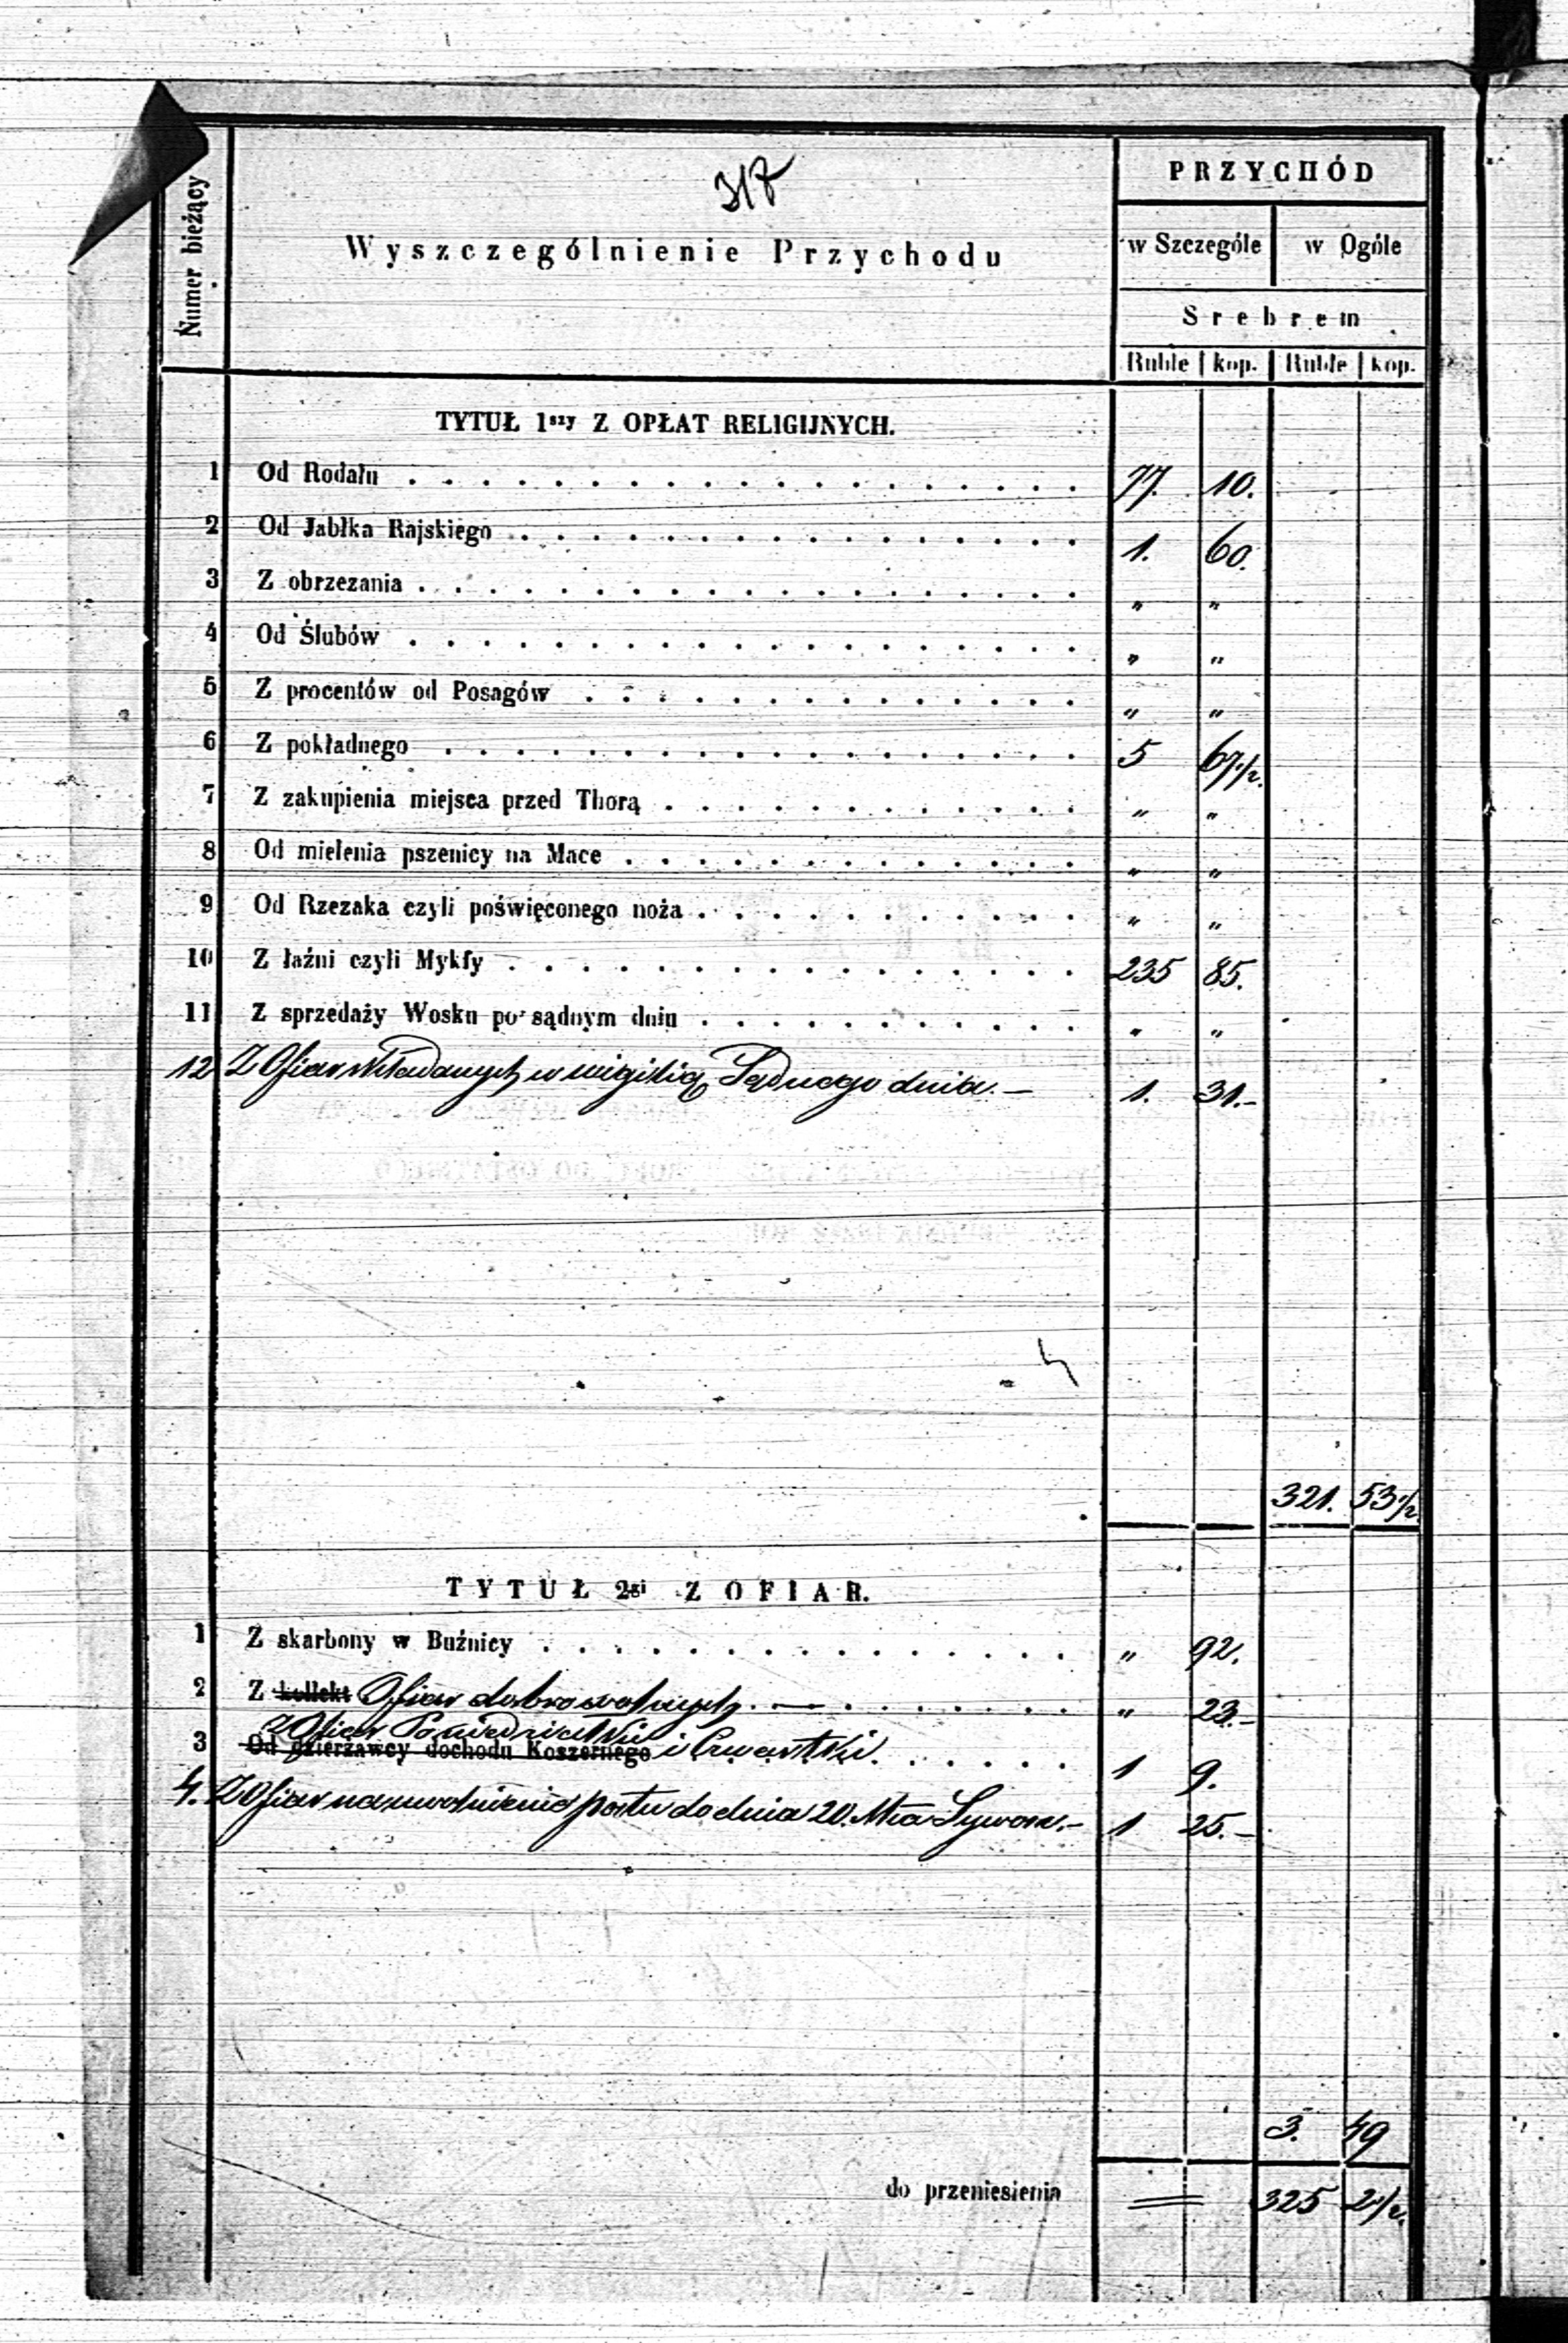 317
PRZYCHÓD
Numer bieżący
Wyszczególnienie Przychodu
w Szczególe w Ogóle
Srebrem
Ruble kop. Ruble kop.
TYTUŁ 1szy Z OPŁAT RELIGIJNYCH.
1 Od Rodału . . . . . . . . . . . . . . . . . . . 77. 10.
2 Od Jabłka Rajskiego . . . . . . . . . . . . . . . . 1. 60.
3 Z obrzezania . . . . . . . . . . . . . . . . . . . " "
4 Od Ślubów . . . . . . . . . . . . . . . . . . . " "
5 Z procentów od Posagów . . . . . . . . . . . . . . " "
6 Z pokładnego . . . . . . . . . . . . . . . . . . 5 67 1/2.
7 Z zakupienia miejsca przed Thorą . . . . . . . . . . . . " "
8 Od mielenia pszenicy na Mace . . . . . . . . . . . . . " "
9 Od Rzezaka czyli poświęconego noża . . . . . . . . . . . " "
10 Z łaźni czyli Mykfy . . . . . . . . . . . . . . . . 235 85.
11 Z sprzedaży Wosku po sądnym dniu . . . . . . . . . . . " "
12 Z Ofiar składanych w wigilią Sądnego dnia. — 1. 31.—
321. 53 1/2.
TYTUŁ 2gi Z OFIAR.
1 Z skarbony w Buźnicy . . . . . . . . . . . . . . . " 92.
2 Z kollekt Ofiar dobrowolnych. — . . . . . . . " 23.—
Z Ofiar Poniedziałku
3 Od dzierżawcy dochodu Koszernego i Czwartku. . . . . . . 1 9.
4. Z Ofiar na uwolnienie postu do dnia 20. Mca Sywan.— 1 25.—
3. 49
do przeniesienia 325 2 1/2.